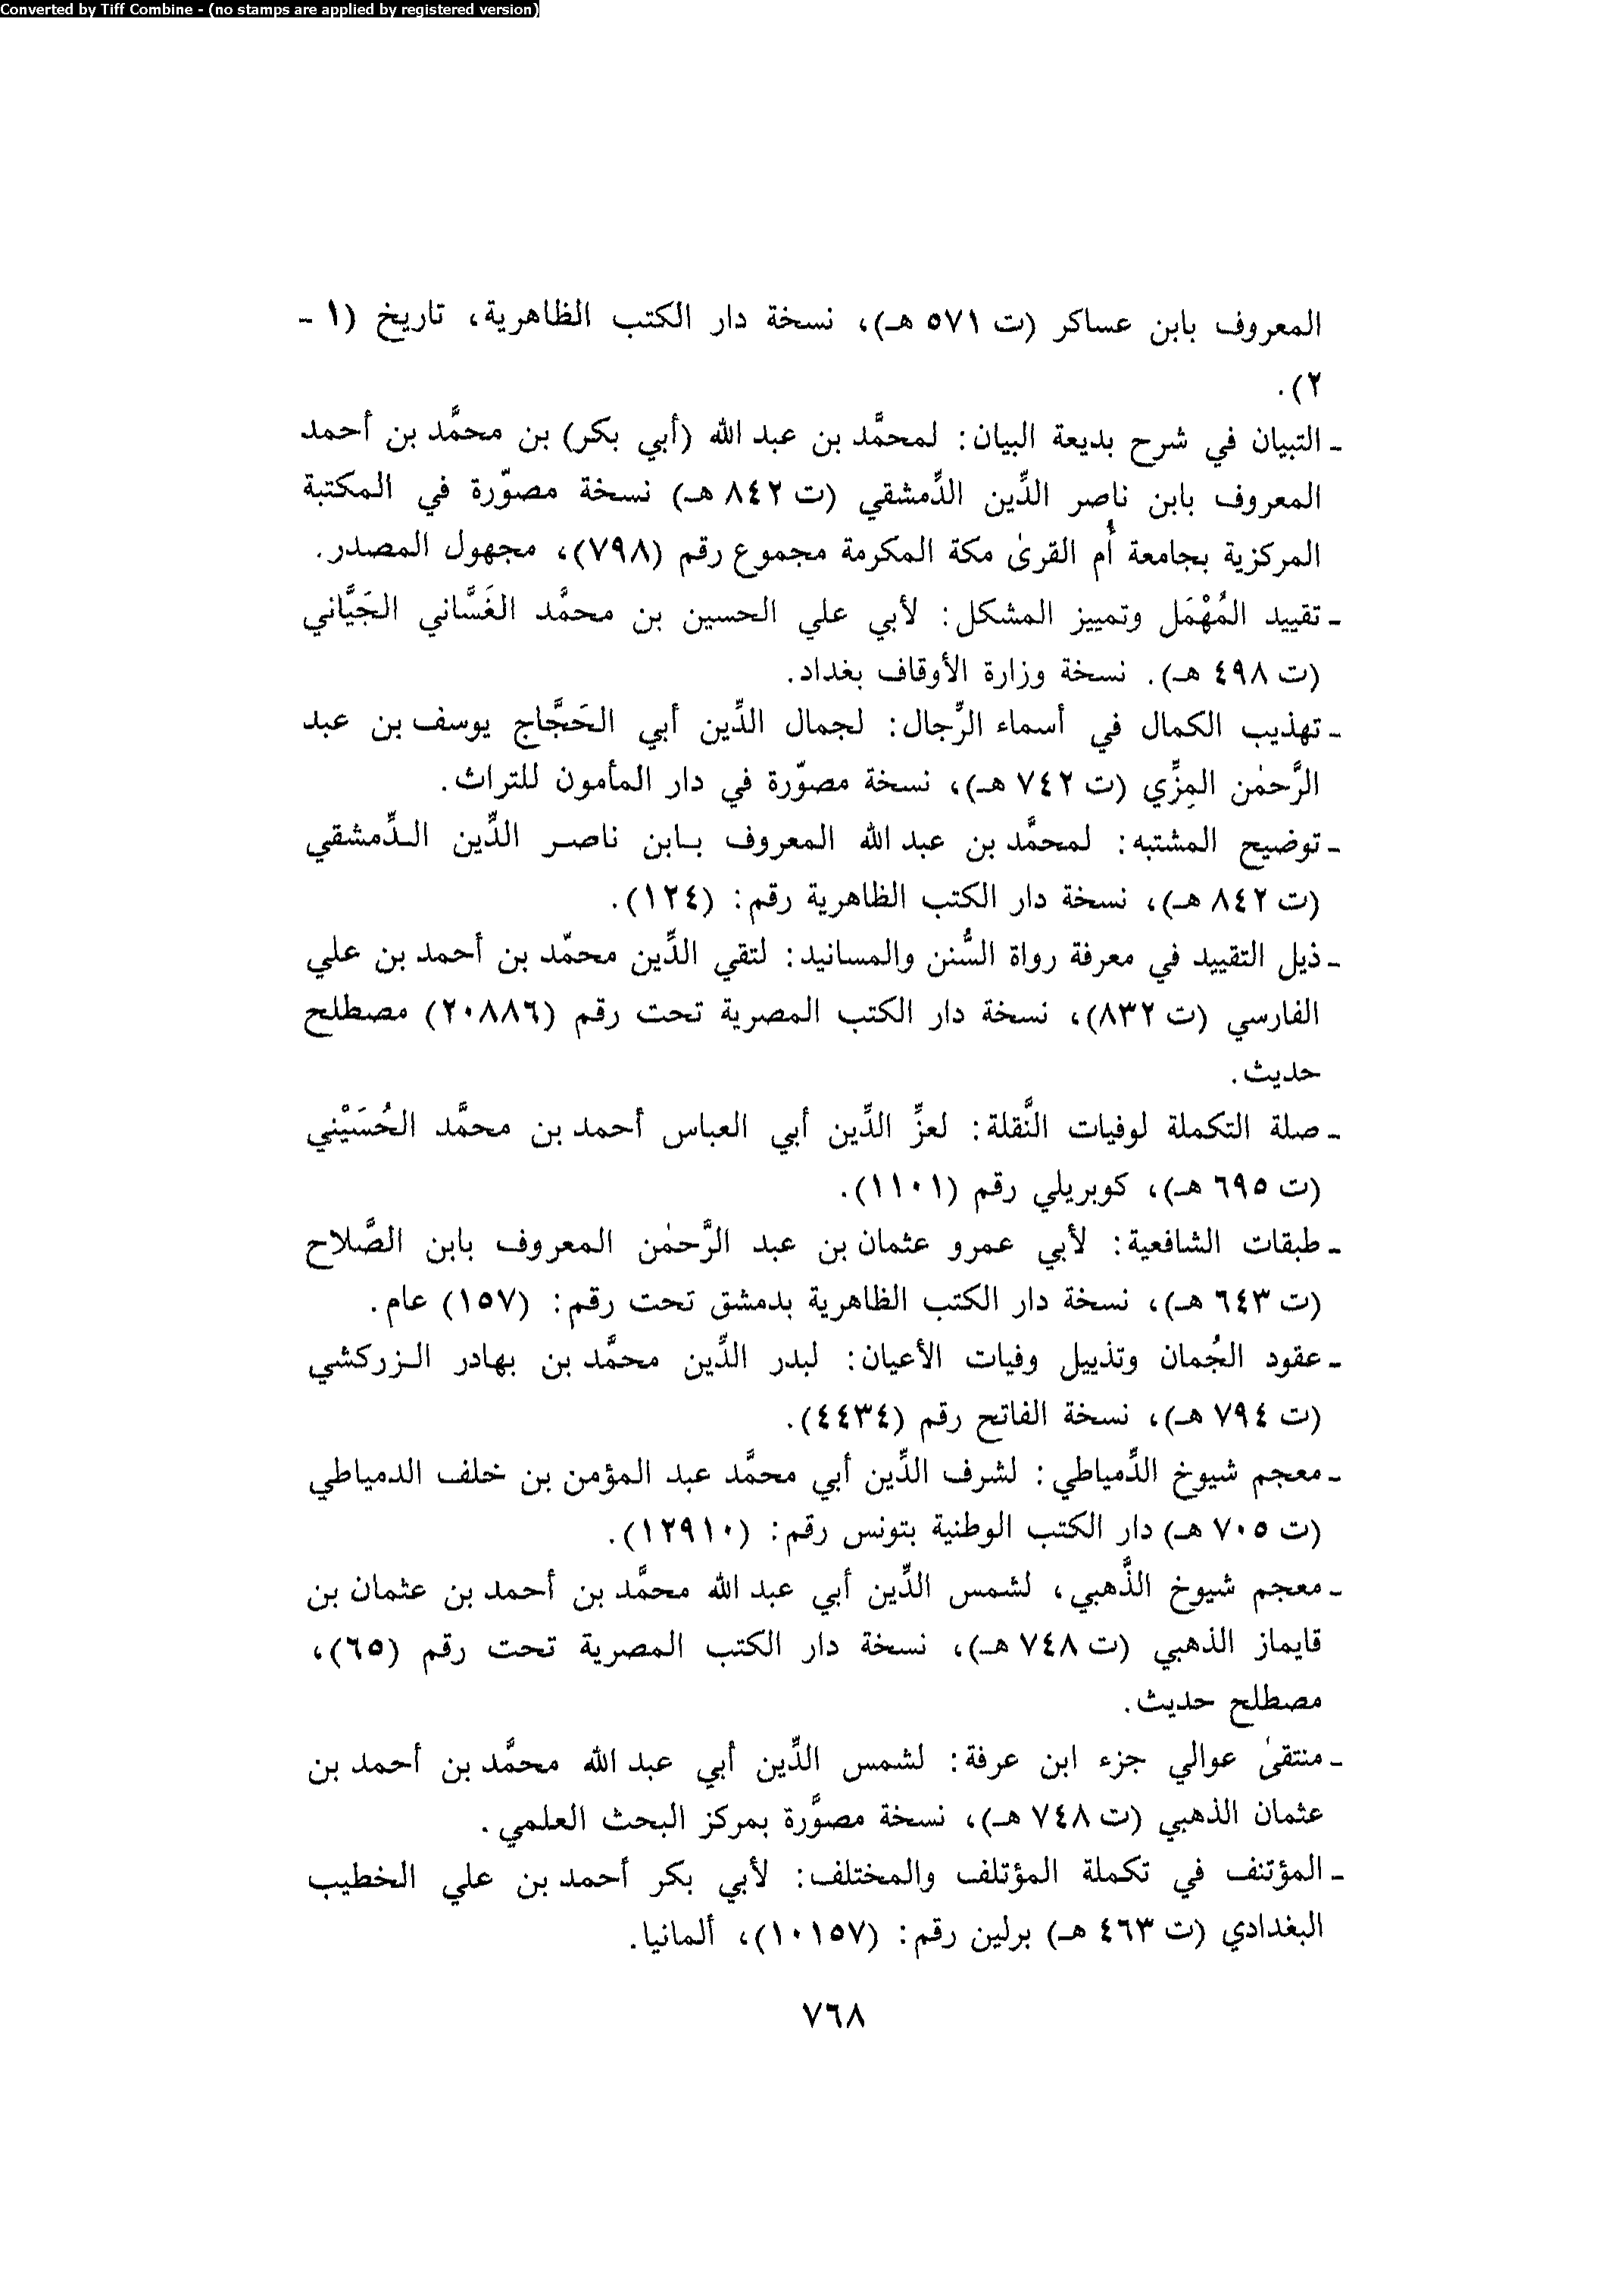 Converted by Tiff Combine - (no stamps are applied by registered version)
المعروف بابن عساكر (ت ٥٧١ هـ)، نسخة دار الكتب الظاهرية، تاريخ (١ -
٢).
- التبيان في شرح بديعة البيان: لمحمَّد بن عبد الله (أبي بكر) بن محمَّد بن أحمد
المعروف بابن ناصر الدِّين الدِّمشقي (ت ٨٤٢ هـ) نسخة مصوّرة في المكتبة
المركزية بجامعة أُم القرىٰ مكة المكرمة مجموع رقم (٧٩٨)، مجهول المصدر.
- تقييد المُهْمَل وتمييز المشكل: لأبي علي الحسين بن محمَّد الغَسَّاني الجَيَّاني
(ت ٤٩٨ هـ). نسخة وزارة الأوقاف بغداد.
- تهذيب الكمال في أسماء الرِّجال: لجمال الدِّين أبي الحَجَّاج يوسف بن عبد
الرَّحمٰن المِزِّي (ت ٧٤٢ هـ)، نسخة مصوّرة في دار المأمون للتراث.
- توضيح المشتبه: لمحمَّد بن عبد الله المعروف بابن ناصر الدِّين الدِّمشقي
(ت ٨٤٢ هـ)، نسخة دار الكتب الظاهرية رقم: (١٢٤).
- ذيل التقييد في معرفة رواة السُّنن والمسانيد: لتقي الدِّين محمّد بن أحمد بن علي
الفارسي (ت ٨٣٢)، نسخة دار الكتب المصرية تحت رقم (٢٠٨٨٦) مصطلح
حديث.
- صلة التكملة لوفيات النَّقلة: لعزِّ الدِّين أبي العباس أحمد بن محمَّد الحُسَيْني
(ت ٦٩٥ هـ)، كوبريلي رقم (١١٠١).
- طبقات الشافعية: لأبي عمرو عثمان بن عبد الرَّحمٰن المعروف بابن الصَّلاح
(ت ٦٤٣ هـ)، نسخة دار الكتب الظاهرية بدمشق تحت رقم: (١٥٧) عام.
- عقود الجُمان وتذييل وفيات الأعيان: لبدر الدِّين محمَّد بن بهادر الزركشي
(ت ٧٩٤ هـ)، نسخة الفاتح رقم (٤٤٣٤).
- معجم شيوخ الدِّمياطي: لشرف الدِّين أبي محمَّد عبد المؤمن بن خلف الدمياطي
(ت ٧٠٥ هـ) دار الكتب الوطنية بتونس رقم: (١٢٩١٠).
- معجم شيوخ الذَّهبي، لشمس الدِّين أبي عبد الله محمَّد بن أحمد بن عثمان بن
قايماز الذهبي (ت ٧٤٨ هـ)، نسخة دار الكتب المصرية تحت رقم (٦٥)،
مصطلح حديث.
- منتقىٰ عوالي جزء ابن عرفة: لشمس الدِّين أبي عبد الله محمَّد بن أحمد بن
عثمان الذهبي (ت ٧٤٨ هـ)، نسخة مصوَّرة بمركز البحث العلمي.
- المؤتنف في تكملة المؤتلف والمختلف: لأبي بكر أحمد بن علي الخطيب
البغدادي (ت ٤٦٣ هـ) برلين رقم: (١٠١٥٧)، ألمانيا.
٧٦٨